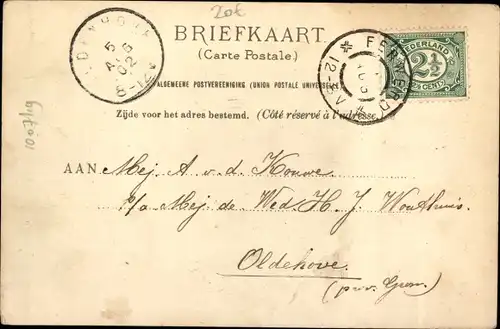 20f
BRIEFKAART
(Carte Postale.)
ALGEMEENE POSTVEREENIGING (UNION POSTALE UNIVERSELLE)
Zijde voor het adres bestemd. (Côté réservé à l'adresse.)
5
02
8-12V
FERWERD
12-
NEDERLAND
2½
CENT
AAN Mej A v. d. Kouwe
p/a Mej de Wed H. J. Wouthuis
Oldehove
(prov. Gron.)